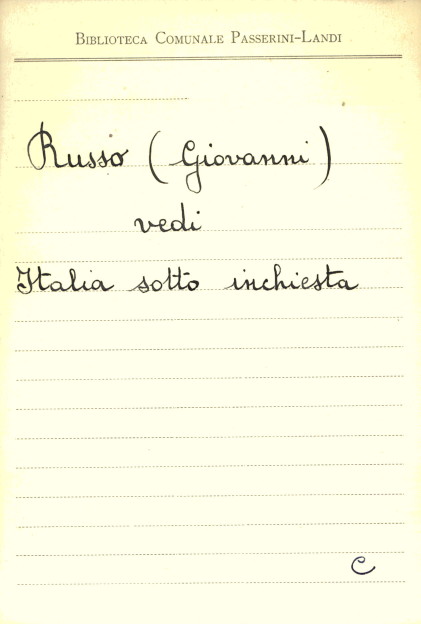 Biblioteca Comunale Passerini-Landi
Russo (Giovanni)
vedi
Italia sotto inchiesta
C